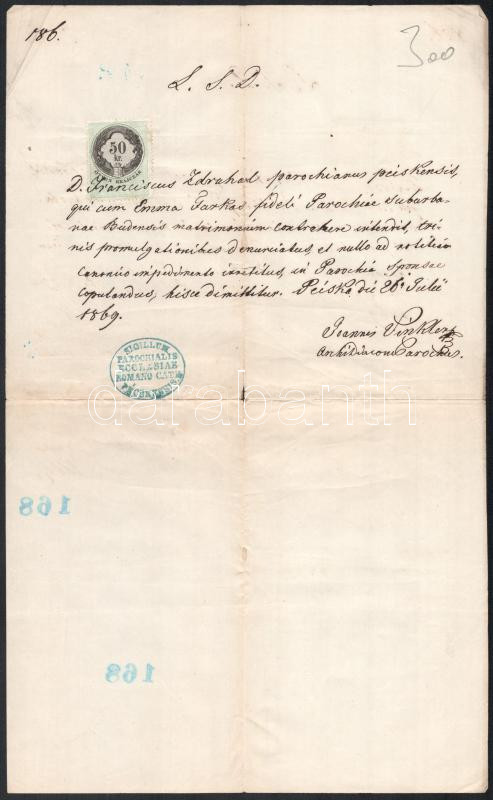 186.
300
L. S. D.
50
kr.
D. Franciscus Zdrahad parochianus pciskensis,
qui cum Emma Farkas fideli Parochiae suburba-
nae Budensis matrimonium contrahere intendit, tri-
nis promulgationibus denunciatus, et nullo ad notitiam
canonico impedimento irretitus, in Parochia Sponsae
copulandus, hisce dimittitur. 26a Julii
1869.
Joannis Pinkler
Parochus.
SIGILLUM
PAROCHIALIS
ECCLESIAE
ROMANO CATH
darabanth
168
168